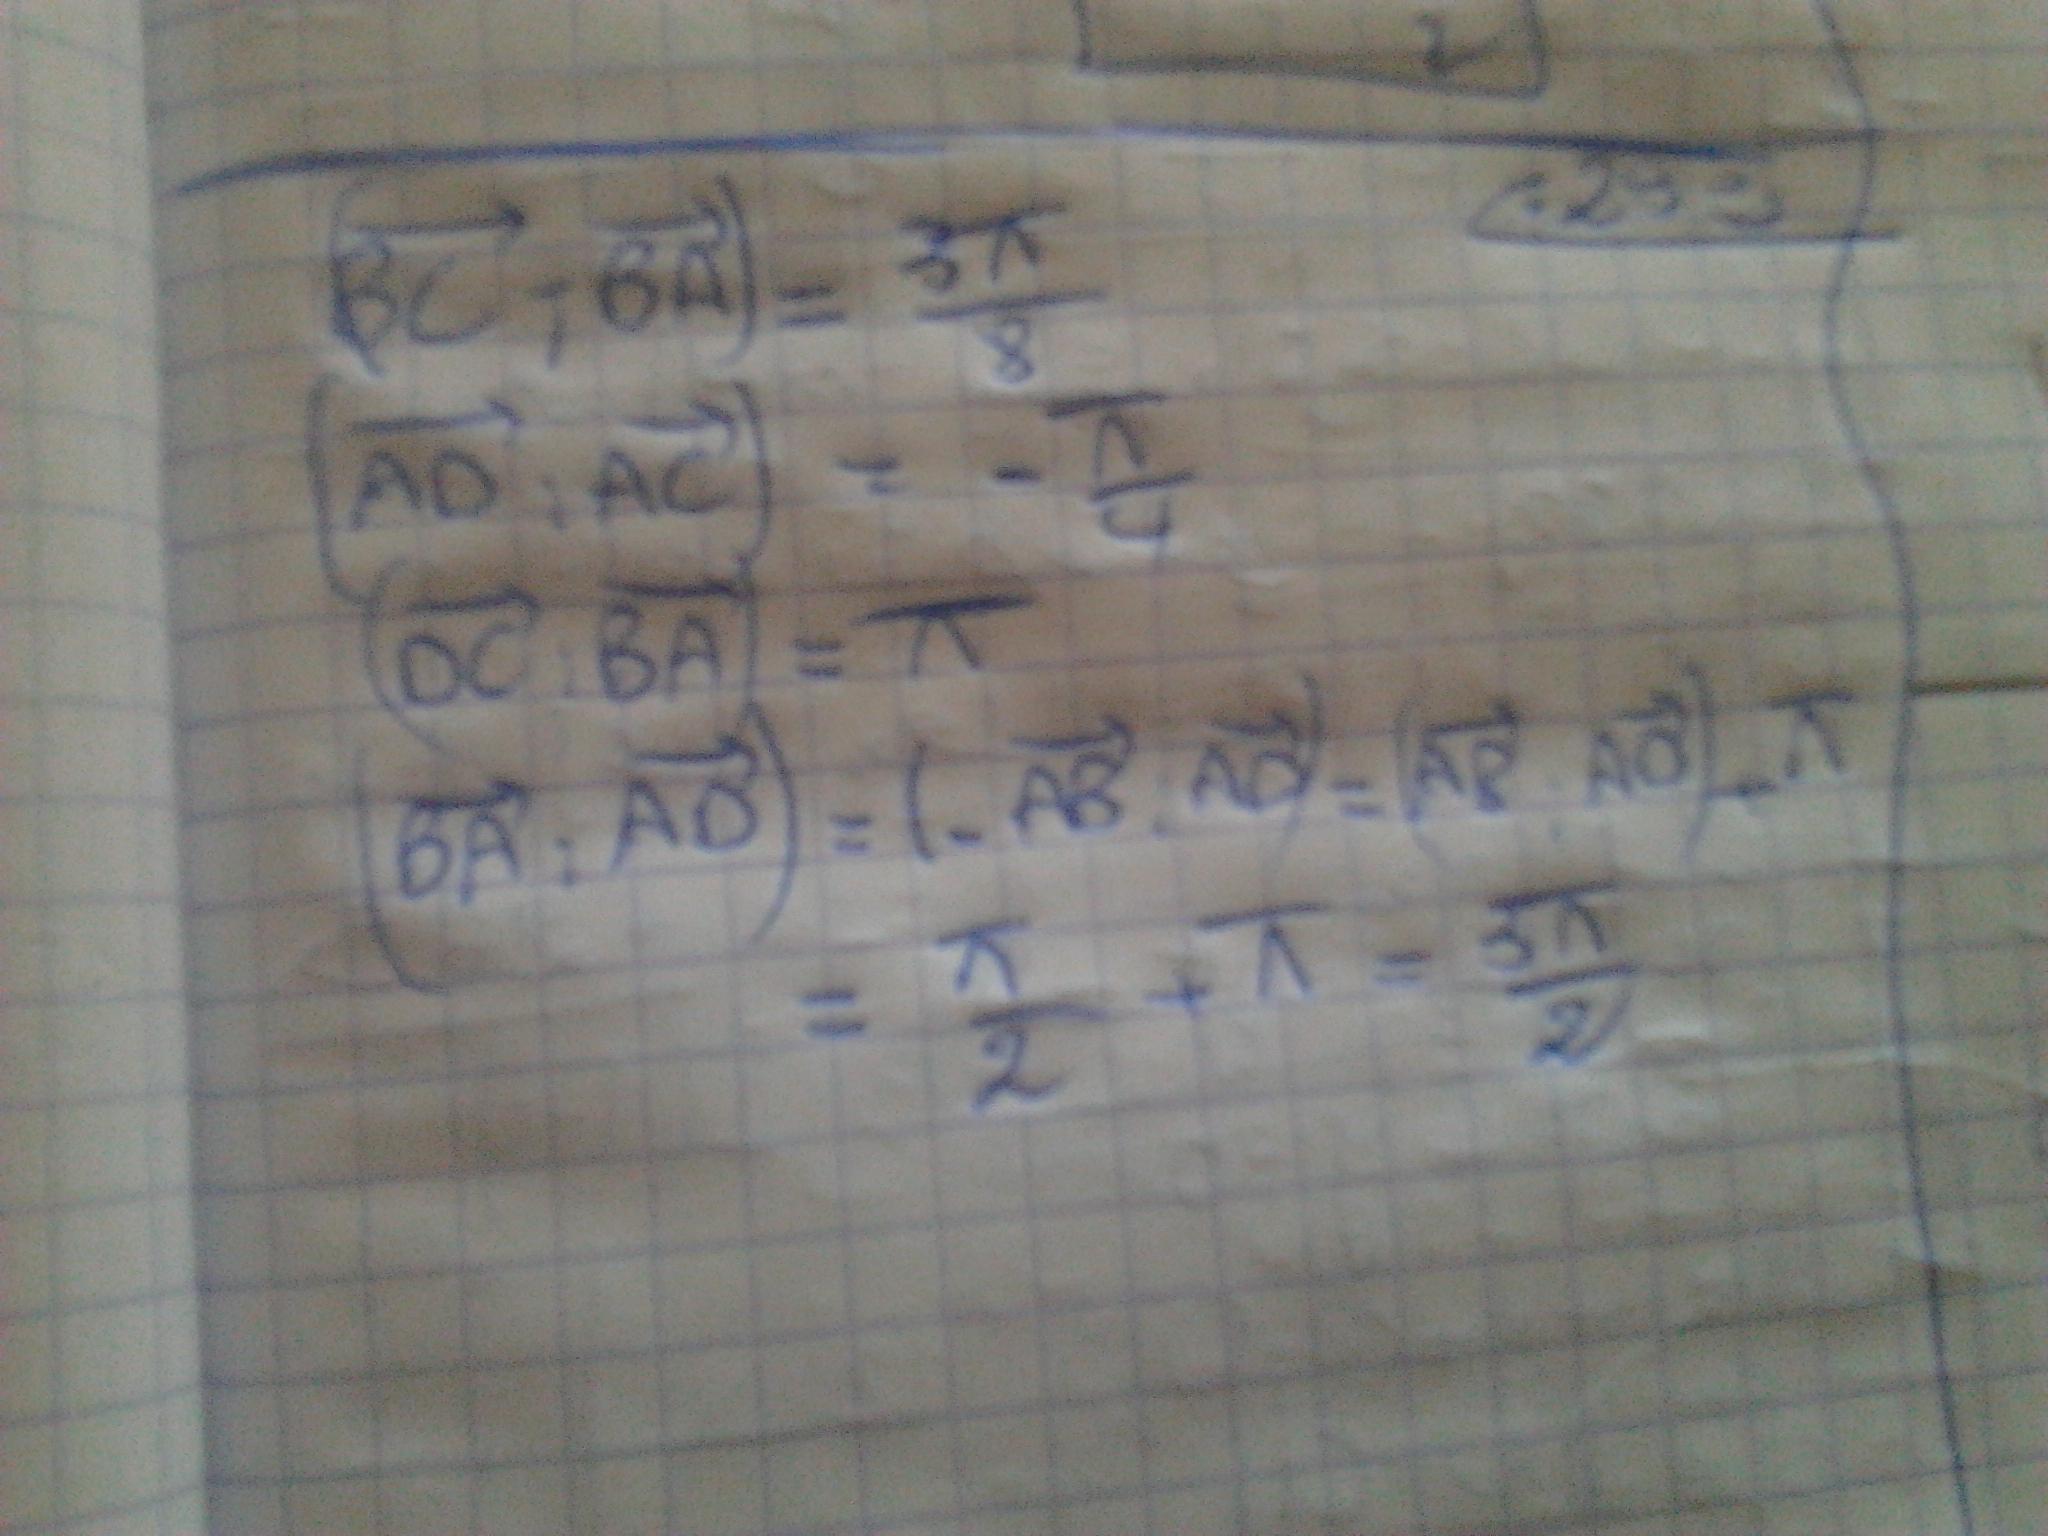 2
(BC⃗ ; BA⃗) = 3π/8
(AD⃗ ; AC⃗) = - π/4
(DC⃗ ; BA⃗) = π
(BA⃗ ; AD⃗) = (- AB⃗ ; AD⃗) = (AB⃗ ; AD⃗) - π
= π/2 + π = 3π/2